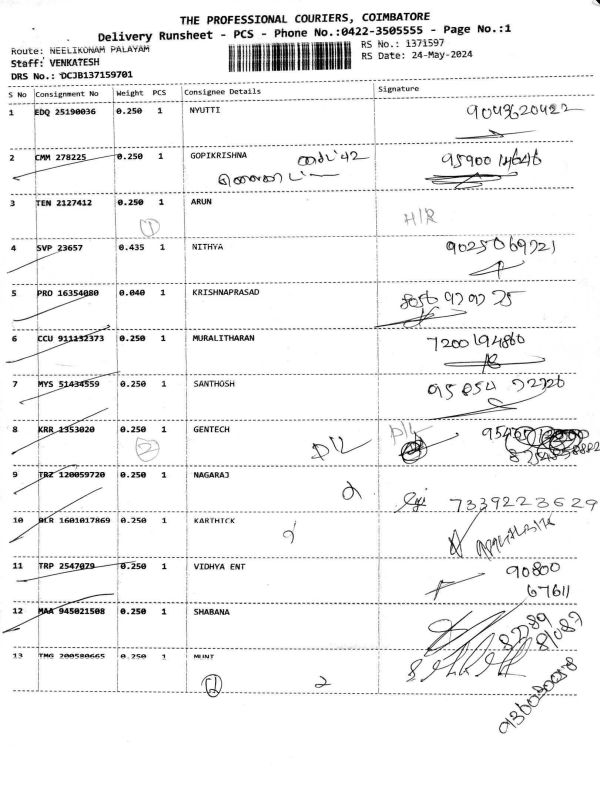 THE PROFESSIONAL COURIERS, COIMBATORE
Delivery Runsheet - PCS - Phone No.:0422-3505555 - Page No.:1
Route: NEELIKONAM PALAYAM
RS No.: 1371597
Staff: VENKATESH
RS Date: 24-May-2024
DRS No.: DCJB137159701
S No Consignment No Weight PCS Consignee Details Signature
1 EDQ 25190036 0.250 1 NYUTTI 9043620422
2 CMM 278225 0.250 1 GOPIKRISHNA 42 9590014646
3 TEN 2127412 0.250 1 ARUN H/R
1
4 SVP 23657 0.435 1 NITHYA 9025069721
5 PRO 16354080 0.040 1 KRISHNAPRASAD 8056 979725
6 CCU 911132373 0.250 1 MURALITHARAN 7200194860
7 MYS 51434559 0.250 1 SANTHOSH 95854 72726
8 KRR 1353020 0.250 1 GENTECH D/L D/L
2
9 TRZ 120059720 0.250 1 NAGARAJ 2 7339223629
10 BLR 1601017869 0.250 1 KARTHICK
11 TRP 2547079 0.250 1 VIDHYA ENT 90800
67611
12 MAA 945021508 0.250 1 SHABANA 87789
81087
13 TMG 200580665 0.250 1 MUNI
2
9360300878